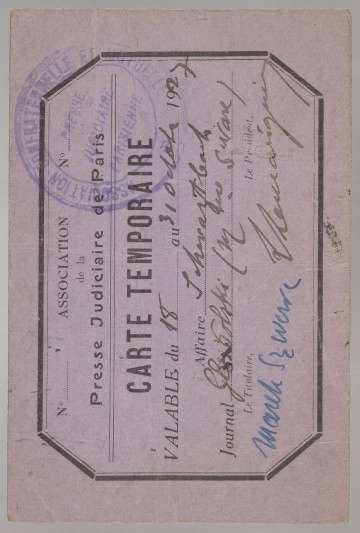 N° ASSOCIATION N°
de la
Presse Judiciaire de Paris
CARTE TEMPORAIRE
VALABLE du 18 au 31 octobre 1927
Affaire Schwartzbard
Journal
Le Titulaire, Le Président,
Marek Szwarc
PRESSE
JUDICIAIRE
PARISIENNE
ASSOCIATION CONFRATERNELLE ET